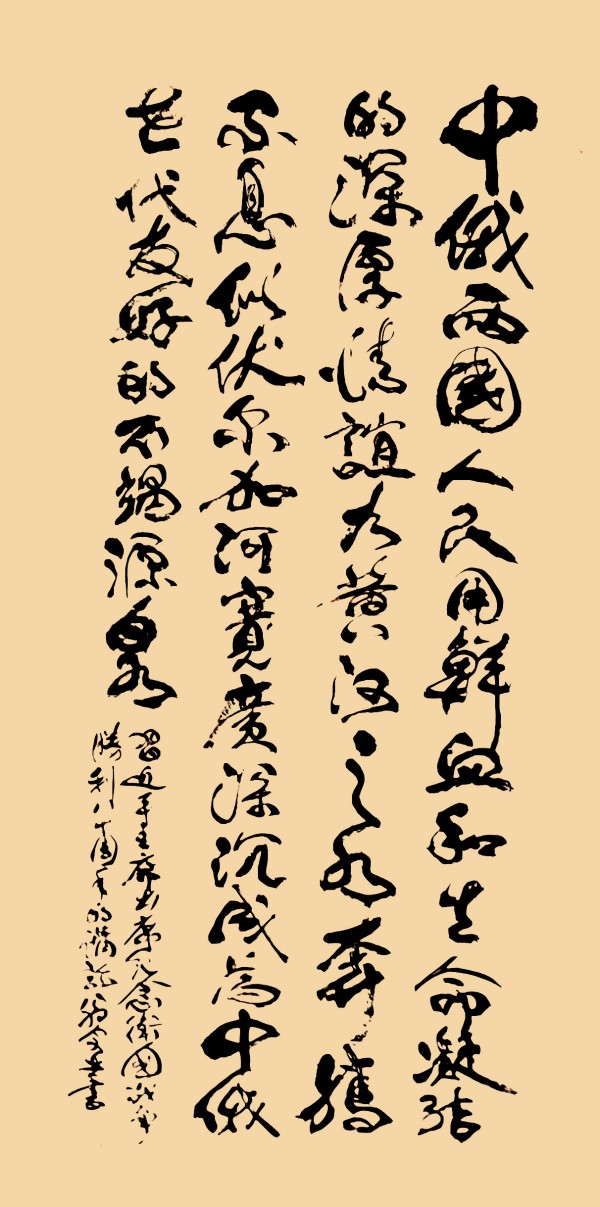 中俄两國人民用鲜血和生命凝结
的深厚情誼如黄河之水奔腾
不息似伏尔加河寬廣深沉成为中俄
世代友好的不竭源泉
習近平主席出席纪念衛國战争
勝利八十周年的講話 书